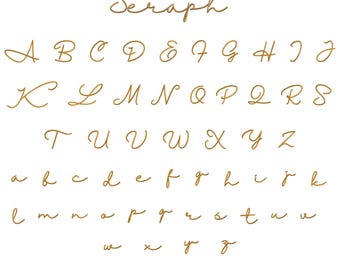 Seraph
A B C D E F G H I J
K L M N O P Q R S
T U V W X Y Z
a b c d e f g h i j k
l m n o p q r s t u v
w x y z